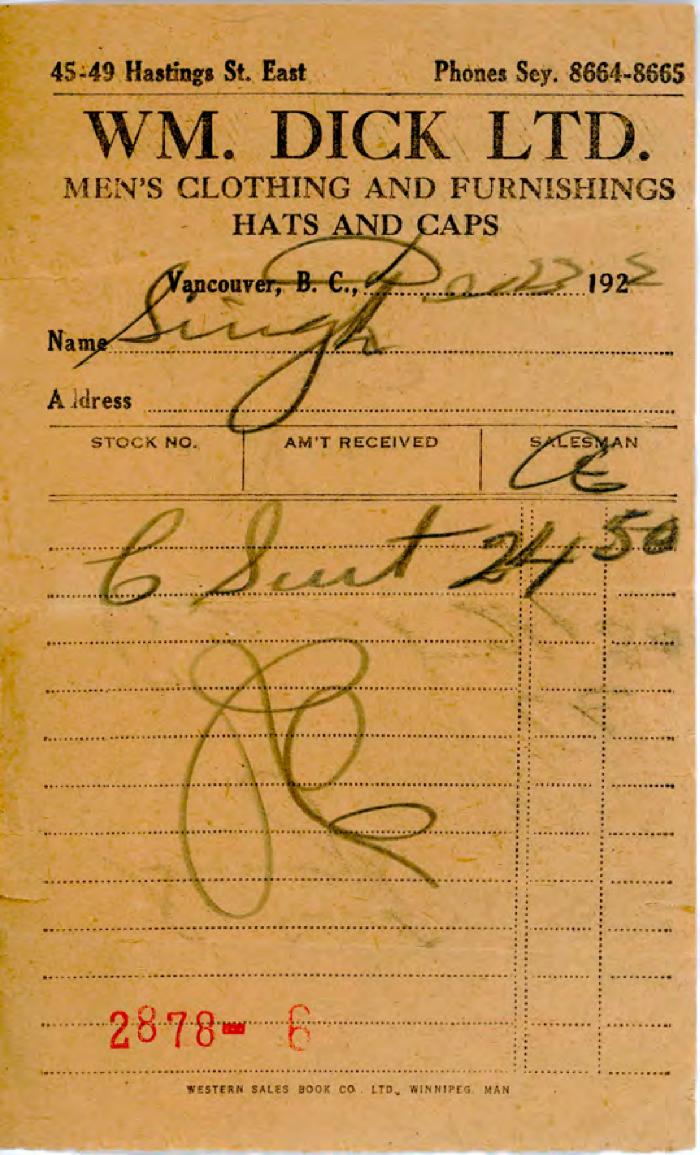 45-49 Hastings St. East Phones Sey. 8664-8665
WM. DICK LTD.
MEN'S CLOTHING AND FURNISHINGS
HATS AND CAPS
Vancouver, B. C., 22 1922
Name Singh
Address
STOCK NO. AM'T RECEIVED SALESMAN
6 Suit 24 50
2878- 6
WESTERN SALES BOOK CO. LTD., WINNIPEG. MAN